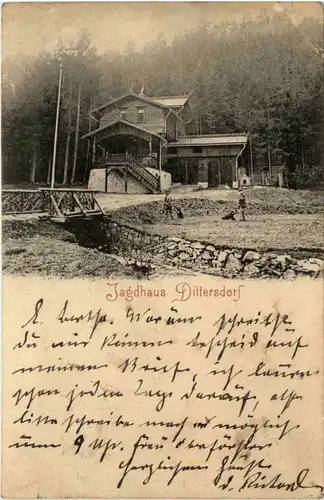 Jagdhaus Dittersdorf
L. Bertha. Warum schreibst
du mir keinen Bescheid auf
meinen Brief, ich laure
schon jeden Tag darauf, also
bitte schreibe mach womöglich
um 9 Uhr. Frau Oberförster
herzlichen Gruß
d. Richard